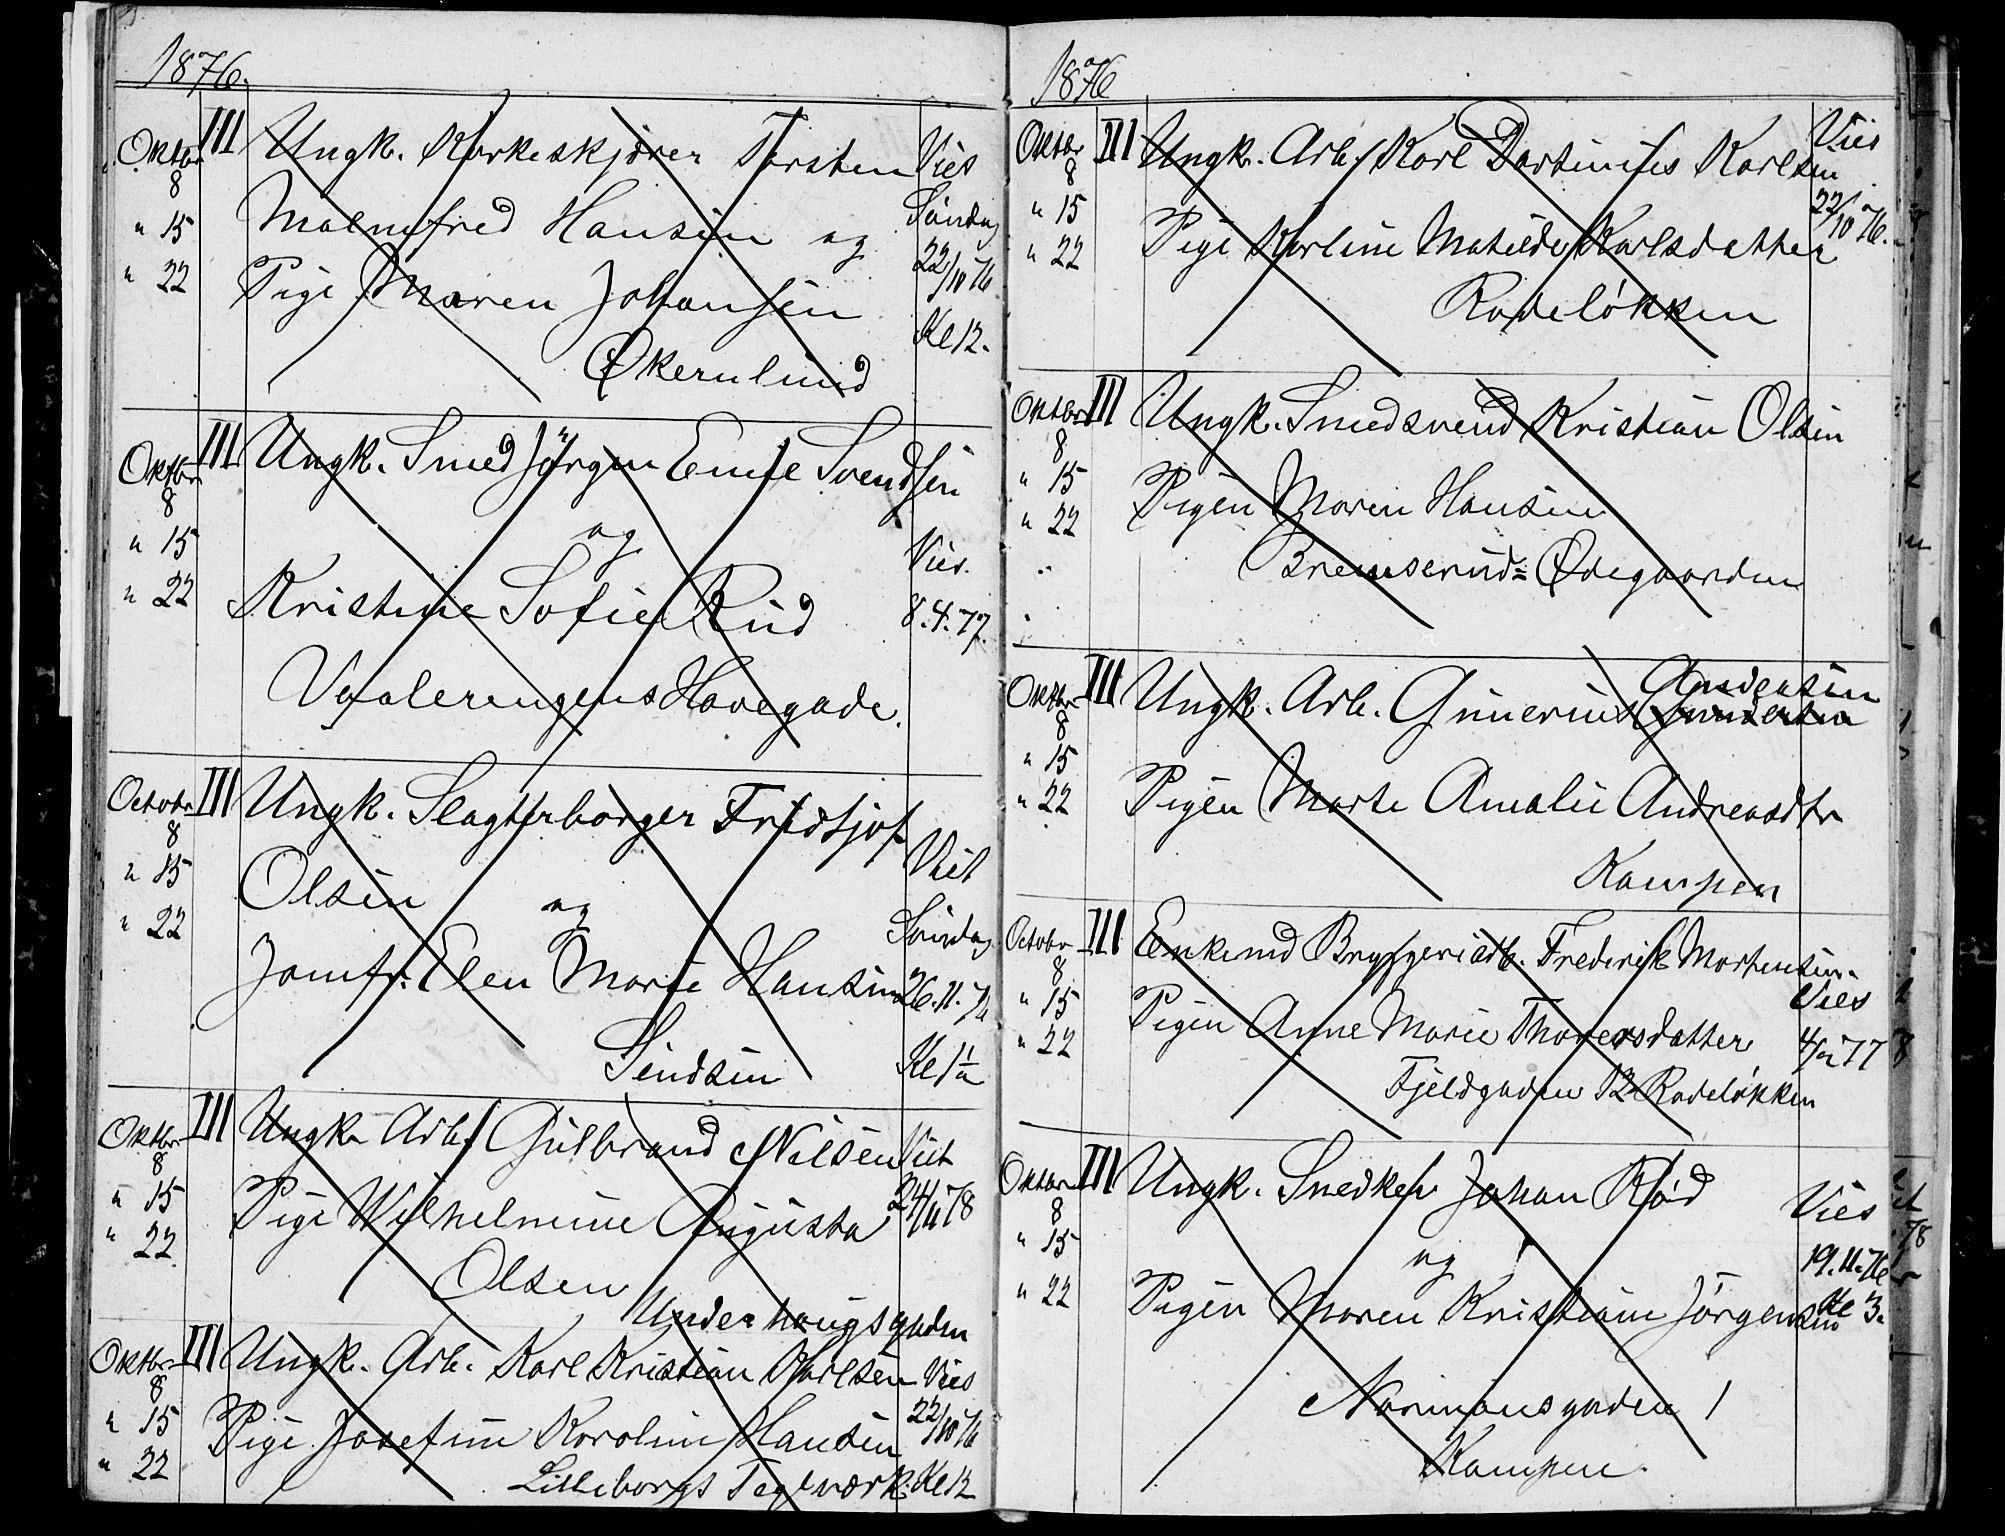 1876.
Oktbr III Ungk. Korkeskjærer Torsten Vies
8
" 15 Malmfred Hansen og Søndag
" 22 Pige Maren Johansen 22/10 76
Kl 12.
Økernlund
Oktbr III Ungk. Smed Jørgen Emil Svendsen
8
" 15 og Vies.
" 22 Kristine Sofie Rud 8.4.77.
Vaalerengens Havegade.
Octobr III Ungk. Slagterborger Fridtjof
8
" 15 Olsen og Viet
" 22 Søndag
Jomfr. Elen Marie Hansen 26.11.76
Sindsen Kl 1½
Oktbr III Ungk. Arb. Gulbrand Nilsen Viet
8
" 15 Pige Wilhelmine Augusta 24/11 78
" 22
Olsen
Underhaugsgaden
Oktbr III Ungk. Arb. Karl Kristian Karlsen Vies
8
" 15 Pige Josefine Karoline Hansen 22/10 76
" 22 Lilleborgs Teglværk. Kl 12
1876
Oktbr III Ungk. Arb. Karl Karlsen Vies
8
" 15 22/10 76.
" 22 Pige Karline Matilde Karlsdatter
Rodeløkken
Oktbr III Ungk. Smedsvend Kristian Olsen
8
" 15
" 22 Pigen Maren Hansen
Bremserud= Ødegaarden
Andersen
Oktbr III Ungk. Arb. Gunerius Gundersen
8
" 15
" 22 Pigen Marte Amalie Andreasdtr
Kampen
Octobr III Enkemd Bryggeriarb. Frederik Mortensen.
8 Vies
" 15 Pigen Anne Marie Thoversdatter
" 22 77
Fjeldgaden 12 Rodeløkken
Oktbr III Ungk. Snedker Johan Rød
8 Vies
" 15 og 19.11.76
" 22 Pigen Maren Kristiane Jørgensen Kl 3.
Normansgaden 1
Kampen.